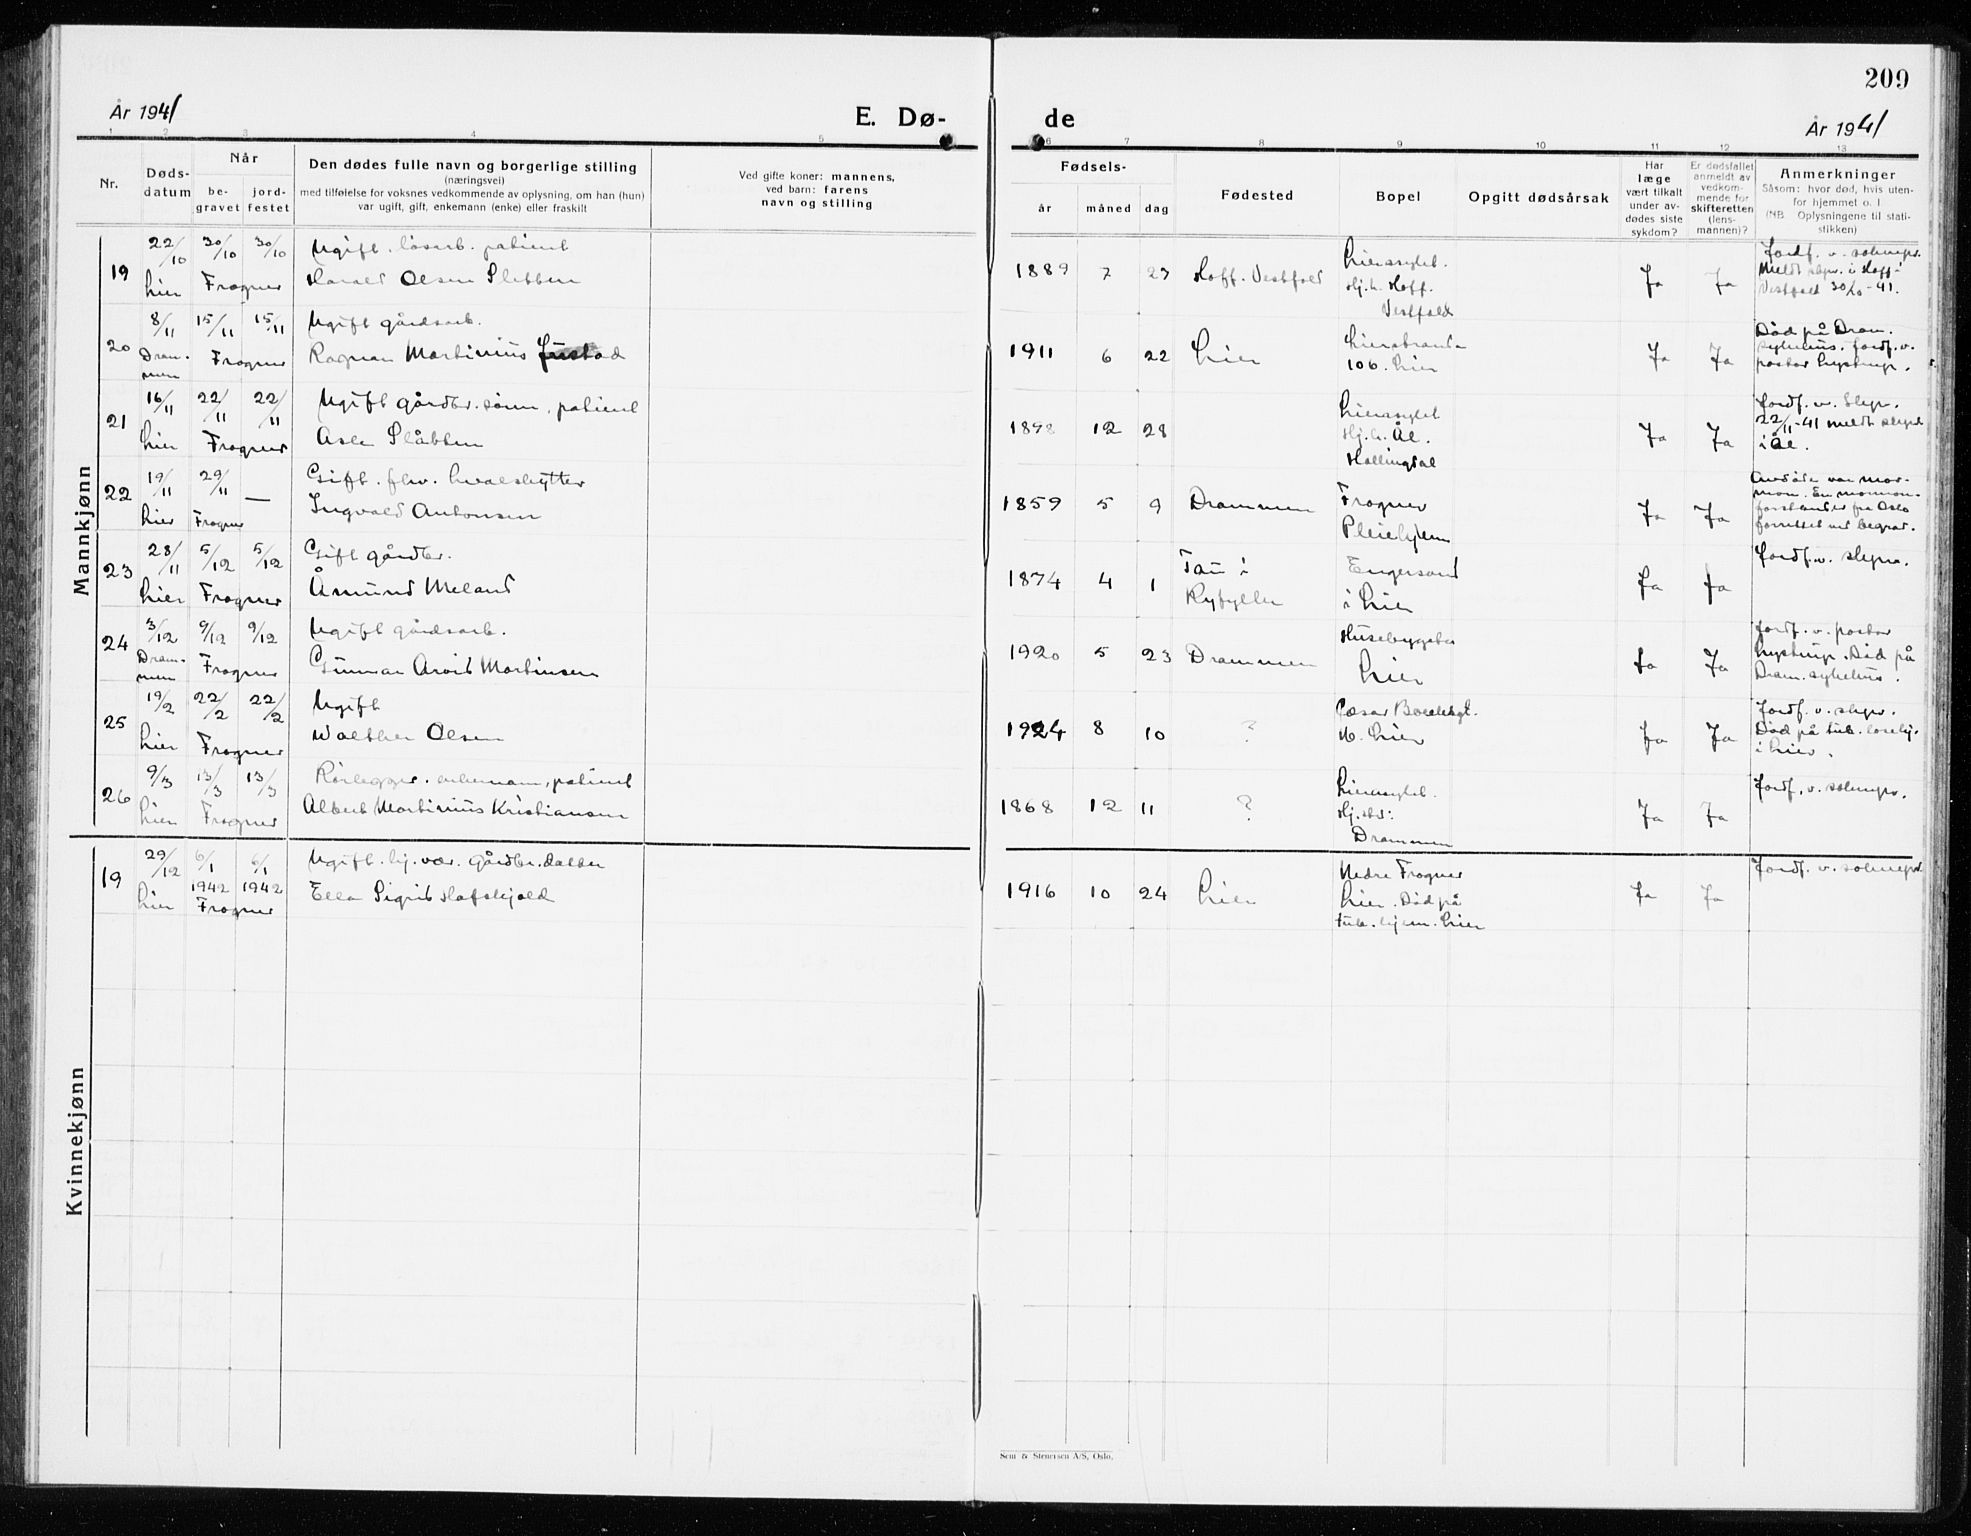 209
År 1941
E. Dø-
de
År 1941
1 2 3 4 5 6 7 8 9 10 11 12 13
Nr.
Døds-
datum
Når
be-
gravet
jord-
festet
Den dødes fulle navn og borgerlige stilling
(næringsvei)
med tilføielse for voksnes vedkommende av oplysning, om han (hun)
var ugift, gift, enkemann (enke) eller fraskilt
Ved gifte koner: mannens,
ved barn: farens
navn og stilling
Fødsels-
år
måned
dag
Fødested
Bopel
Opgitt dødsårsak
Har
læge
vært tilkalt
under av-
dødes siste
sykdom?
Er dødsfallet
anmeldt av
vedkom-
mende for
skifteretten
(lens-
mannen)?
Anmerkninger
Såsom: hvor død, hvis uten-
for hjemmet o. l
(NB. Oplysningene til stati-
stikken)
Mannkjønn
19 22/10 30/10 30/10 Ugift. løsarb. patient
Lier Frogner Harald Olsen Slettten
1889 7 27 Hoff. Vestfold
Lierasylet.
Hj.h. Hoff.
Vestfold
Ja Ja
Jordf. v. soknepr.
Meldt sbpr. i Hoff
Vestfold 30/10-41.
20 8/11 15/11 15/11 Ugift gårdsarb.
Dram-
men Frogner Ragnar Martinius Justad
1911 6 22 Lier
Lierstranda
106. Lier
Ja Ja
Død på Dram.
sykehus. Jordf. v.
pastor Lystrup.
21 16/11 22/11 22/11 Ugift gårdbr. sønn, patient
Lier Frogner Asle Slåtten
1898 12 28
Lierasylet
Hj.h. Ål.
Hallingdal
Ja Ja
Jordf. v. slepr.
22/11-41 meldt slepr.
i Ål.
22 19/11 29/11 — Gift. fhv. hvalskytter
Lier Frogner Ingvald Antonsen
1859 5 9 Drammen
Frogner
Pleiehjem
Ja Ja
Avdøde var mor-
mon. En mormon-
forstander fra Oslo
forrettet ved begrav.
23 28/11 5/12 5/12 Gift gårdbr.
Lier Frogner Åmund Meland
1874 4 1
Tau i
Ryfylke
Engersand
i Lier
Ja Ja
Jordf. v. slepr.
24 3/12 9/12 9/12 Ugift gårdsarb.
Dram-
men Frogner Gunnar Arvid Martinsen
1920 5 23 Drammen
Husebygata
Lier
Ja Ja
Jordf. v. pastor
Lystrup. Død på
Dram. sykehus.
25 19/2 22/2 22/2 Ugift
Lier Frogner Walther Olsen
1924 8 10 ?
N. Lier
Ja Ja
Jordf. v. slepr.
Død på tub.
i Lier.
26 9/3 13/3 13/3 Rørlegger. enkemann, patient
Lier Frogner Albert Martinius Kristiansen
1868 12 11 ?
Lierasylet.
Hj.sted:
Drammen
Ja Ja
Jordf. v. soknepr.
Kvinnekjønn
19 29/12 6/1 6/1 Ugift. hj. vær. Gårdbr. datter
1942 1942
Lier Frogner Ella Sigrid Hafskjold
1916 10 24 Lier
Nedre Frogner
Lier. Død på
tub. hjem. Lier
Ja Ja
Jordf. v. soknepr.
Sem & Stenersen A/S, Oslo.